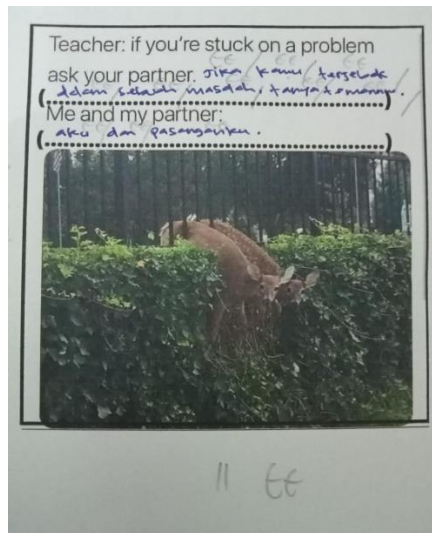 Teacher: if you're stuck on a problem
ask your partner. Jika kamu terjebak
(dalam sebuah masalah, tanya temanmu.)
Me and my partner:
(aku dan pasanganku.)
11 EE